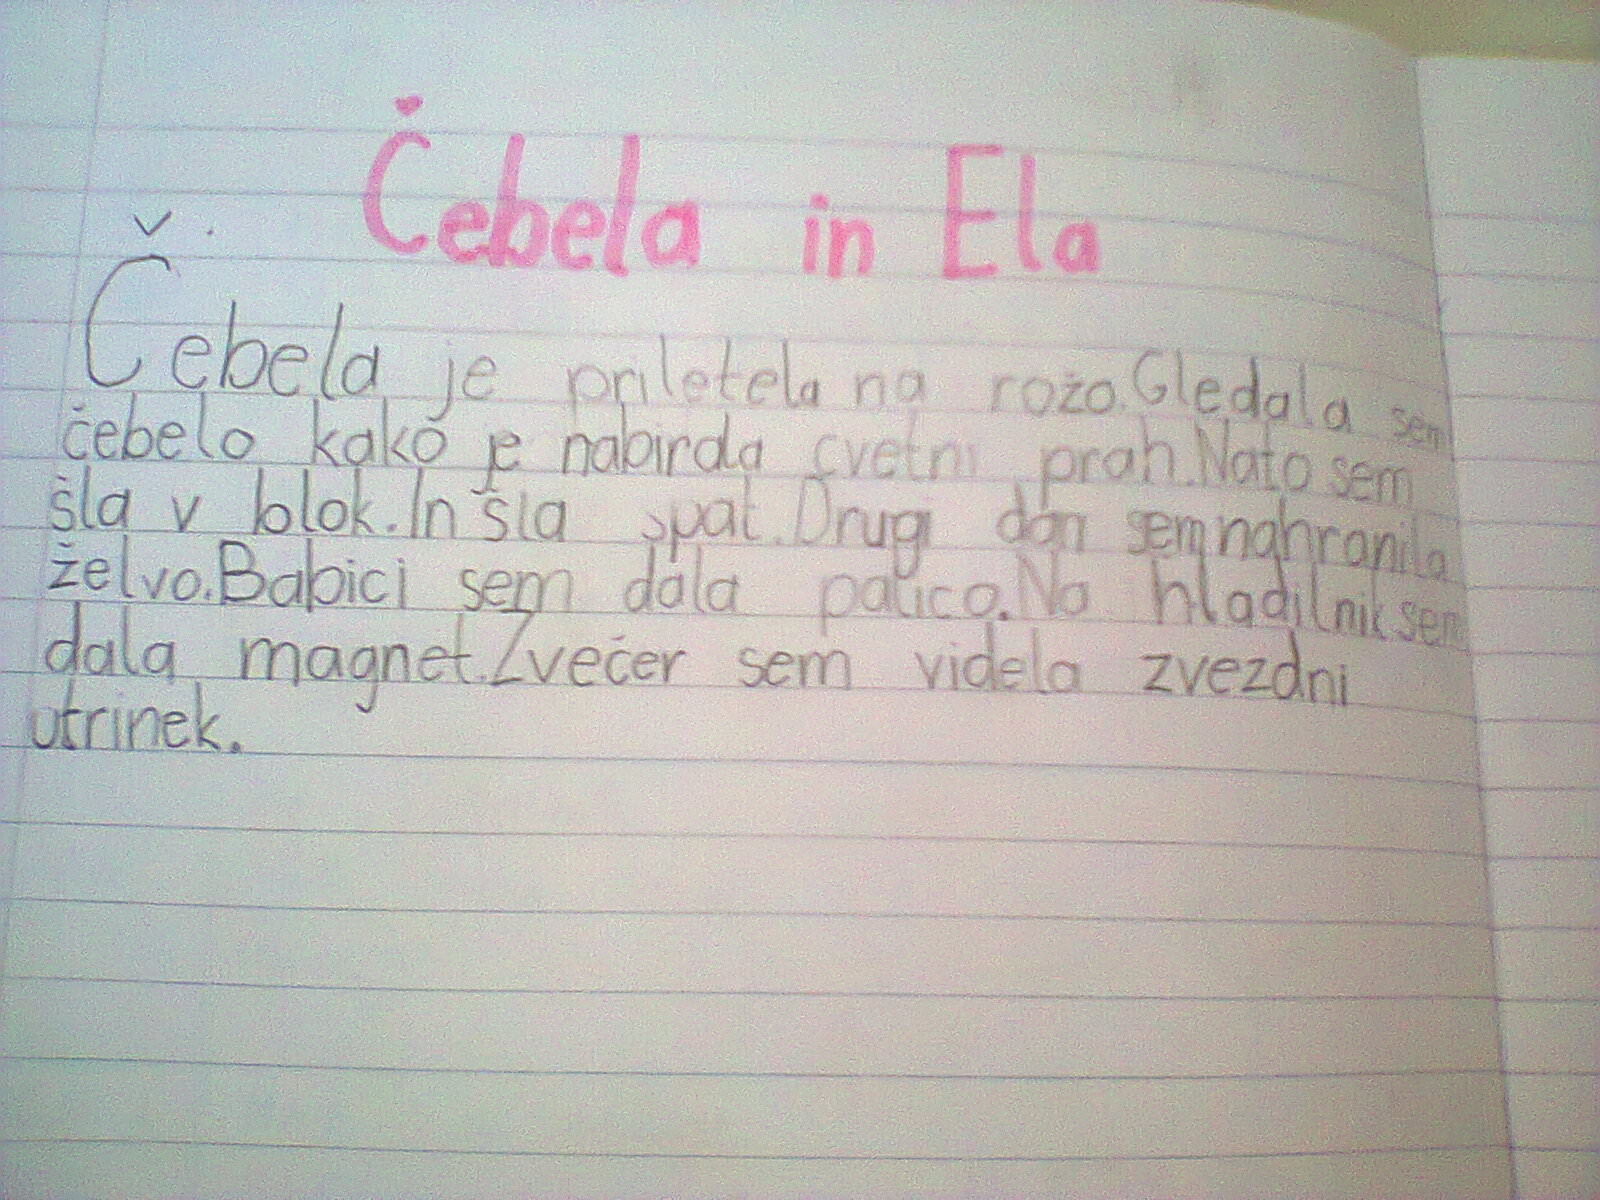 Čebela in Ela
Čebela je priletela na rožo. Gledala sem
čebelo kako je nabirala cvetni prah. Nato sem
šla v blok. In šla spat. Drugi dan sem nahranila
želvo. Babici sem dala palico. Na hladilnik sem
dala magnet. Zvečer sem videla zvezdni
utrinek.